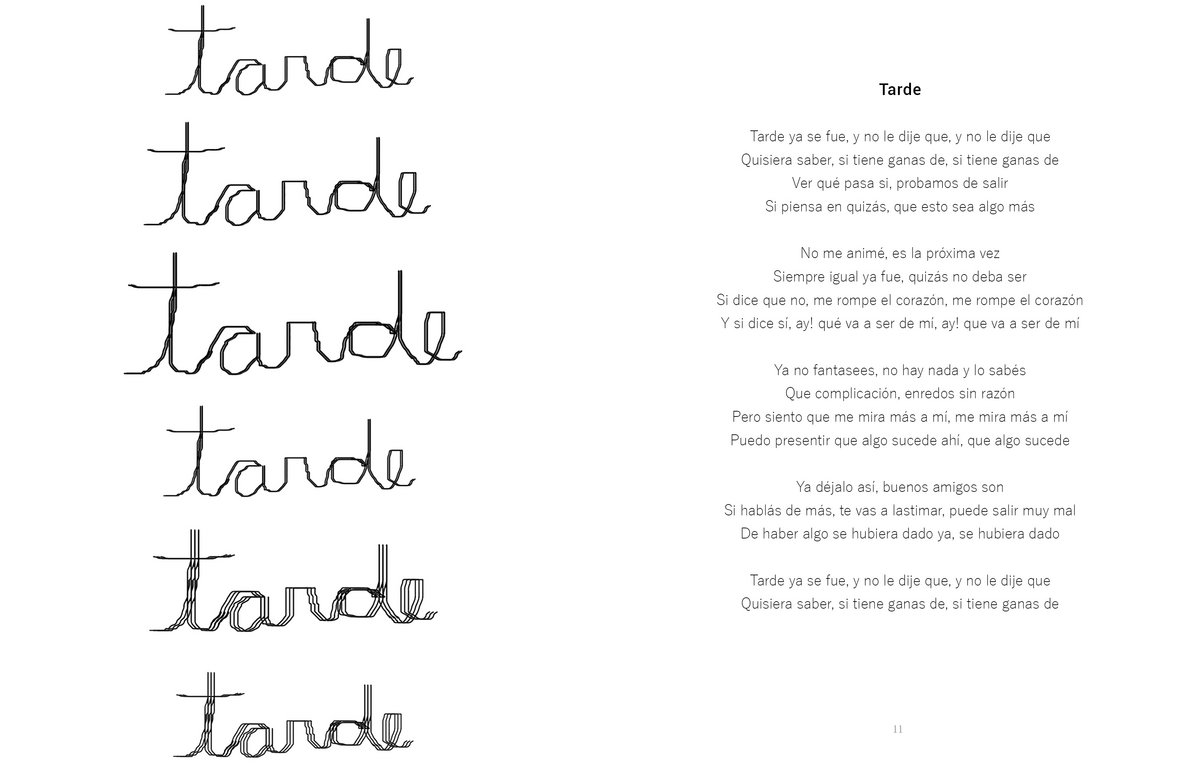 tarde
tarde
tarde
tarde
tarde
tarde
Tarde
Tarde ya se fue, y no le dije que, y no le dije que
Quisiera saber, si tiene ganas de, si tiene ganas de
Ver qué pasa si, probamos de salir
Si piensa en quizás, que esto sea algo más
No me animé, es la próxima vez
Siempre igual ya fue, quizás no deba ser
Si dice que no, me rompe el corazón, me rompe el corazón
Y si dice sí, ay! qué va a ser de mí, ay! que va a ser de mí
Ya no fantasees, no hay nada y lo sabés
Que complicación, enredos sin razón
Pero siento que me mira más a mí, me mira más a mí
Puedo presentir que algo sucede ahí, que algo sucede
Ya déjalo así, buenos amigos son
Si hablás de más, te vas a lastimar, puede salir muy mal
De haber algo se hubiera dado ya, se hubiera dado
Tarde ya se fue, y no le dije que, y no le dije que
Quisiera saber, si tiene ganas de, si tiene ganas de
11